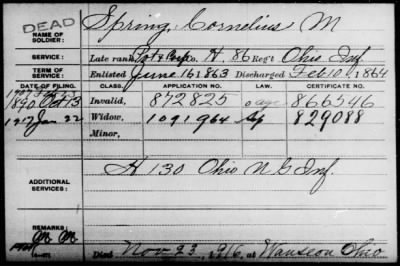 DEAD
NAME OF SOLDIER: Spring, Cornelius M
SERVICE: Late rank Pvt & Corp Co. H, 86 Reg't Ohio Inf
TERM OF SERVICE: Enlisted June 16 1863 Discharged Feb 10, 1864
DATE OF FILING. CLASS. APPLICATION NO. LAW. CERTIFICATE NO.
1890 Oct 13 Invalid, 872825 age 866546
1917 Jan 22 Widow, 1091964 829088
Minor,
ADDITIONAL SERVICES: H 130 Ohio N G Inf.
REMARKS:
Died Nov 23, 1916, at Wauseon Ohio